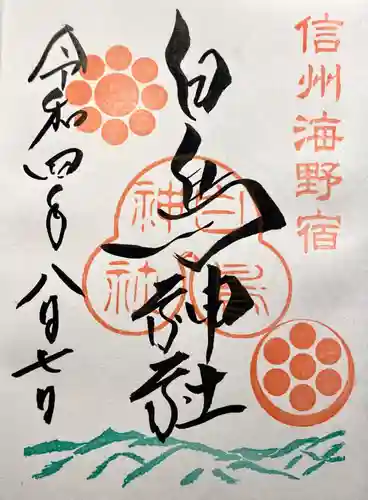 信州海野宿
白鳥神社
白鳥神社
令和四年八月七日